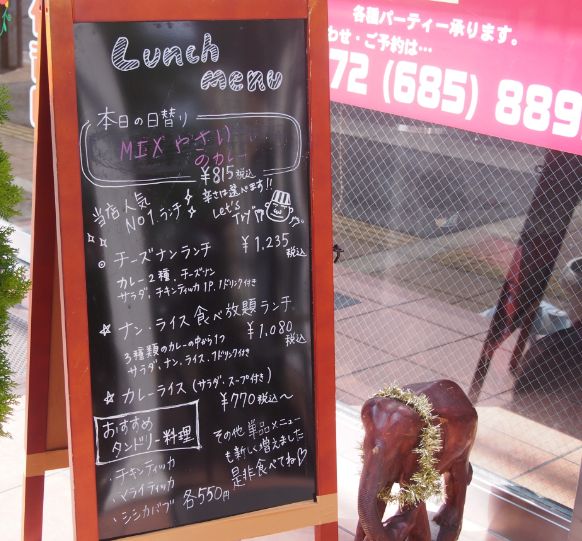 各種パーティー承ります。
わせ・ご予約は…
72 (685) 889
Lunch
menu
本日の日替り
MIX やさい
のカレー
¥815税込
辛さは選べます!!
Let's
Try
当店人気
No1.ランチ
チーズナンランチ
¥1.235
税込
カレー2種、チーズナン
サラダ、チキンティッカ1P、1ドリンク付き
ナン・ライス食べ放題ランチ
¥1.080
税込
3種類のカレーの中から1つ
サラダ、ナン、ライス、1ドリンク付き
カレーライス (サラダ・スープ付き)
¥770税込〜
おすすめ
タンドリー料理
・チキンティッカ
・マライティッカ
・シシカバブ
各550円
その他単品メニュー
も新しく増えました
是非食べてね♡